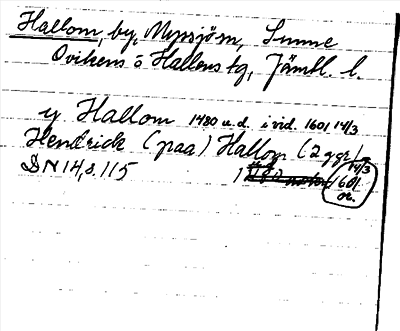 Hallom, by, Myssjöm, Sunne
Ovikens ö Hallens tg, Jämtl. l.
y Hallom 1480 u.d. i vid. 1601 14/3
Hendrick (paa) Hallom (2 ggr)
DN 14, s. 115
14/3
1601
or.